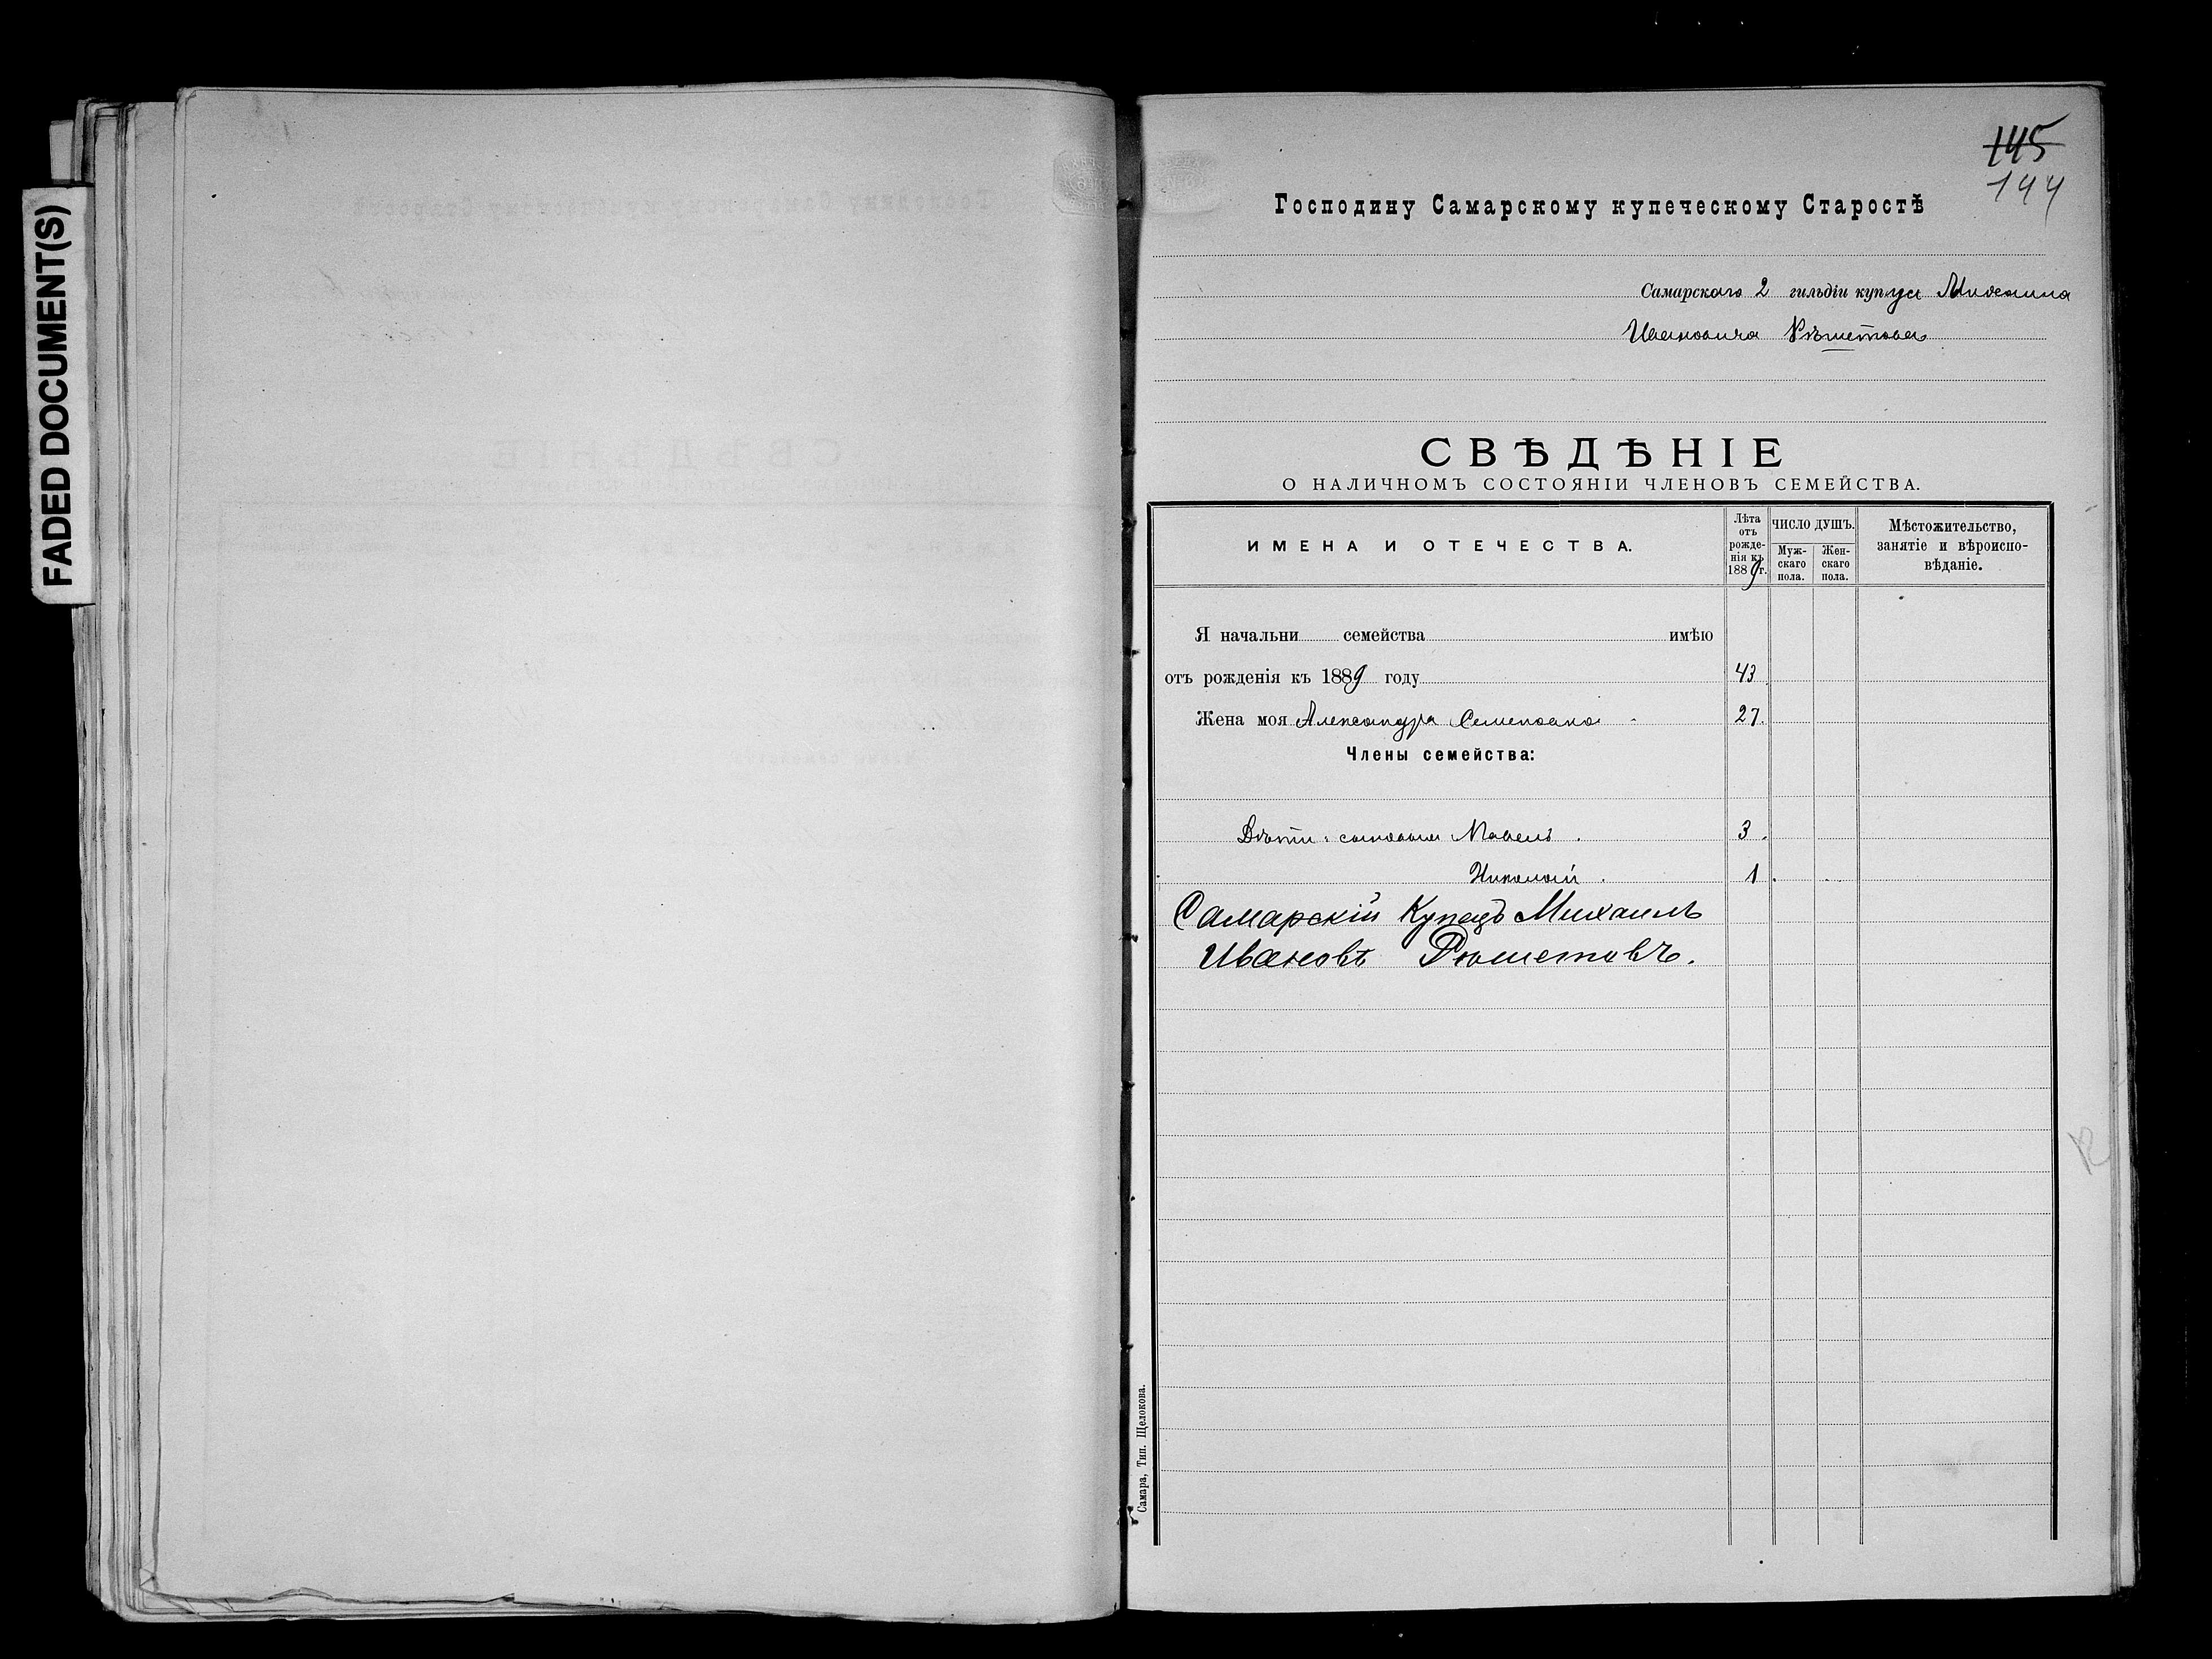 FADED DOCUMENT(S)
145
144
Господину Самарскому купеческому Старостѣ
Самарскаго 2 гильдіи купца Михаила
Ивановича Рѣшетова
СВѢДѢНІЕ
О НАЛИЧНОМЪ СОСТОЯНІИ ЧЛЕНОВЪ СЕМЕЙСТВА.
ИМЕНА И ОТЕЧЕСТВА.
Лѣта
отъ
рожде-
нія къ
1889 г.
ЧИСЛО ДУШЪ.
Муж-
скаго
пола.
Жен-
скаго
пола.
Мѣстожительство,
занятіе и вѣроиспо-
вѣданіе.
Я начальни семейства имѣю
отъ рожденія къ 1889 году 43
Жена моя Александра Семеновна 27.
Члены семейства:
Дѣти: сыновья Павелъ . 3 .
Николай . 1 .
Самарскій Купецъ Михаилъ
Ивановъ Рюшетовъ.
Самара, Тип. Щелокова.